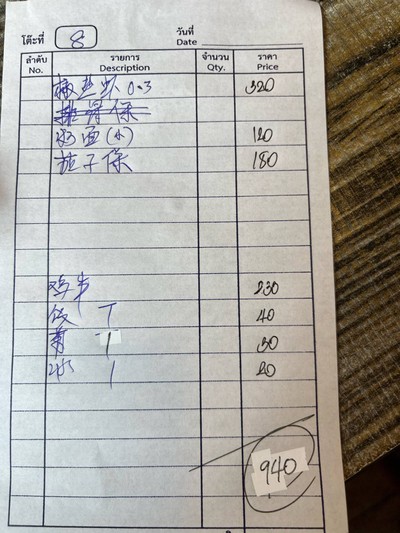 โต๊ะที่ 8 วันที่
Date
ลำดับ รายการ จำนวน ราคา
No. Description Qty. Price
0.3 320
面(小) 120
茄子保 180
鸡半 230
饭 T 40
T 30
冰 1 20
940